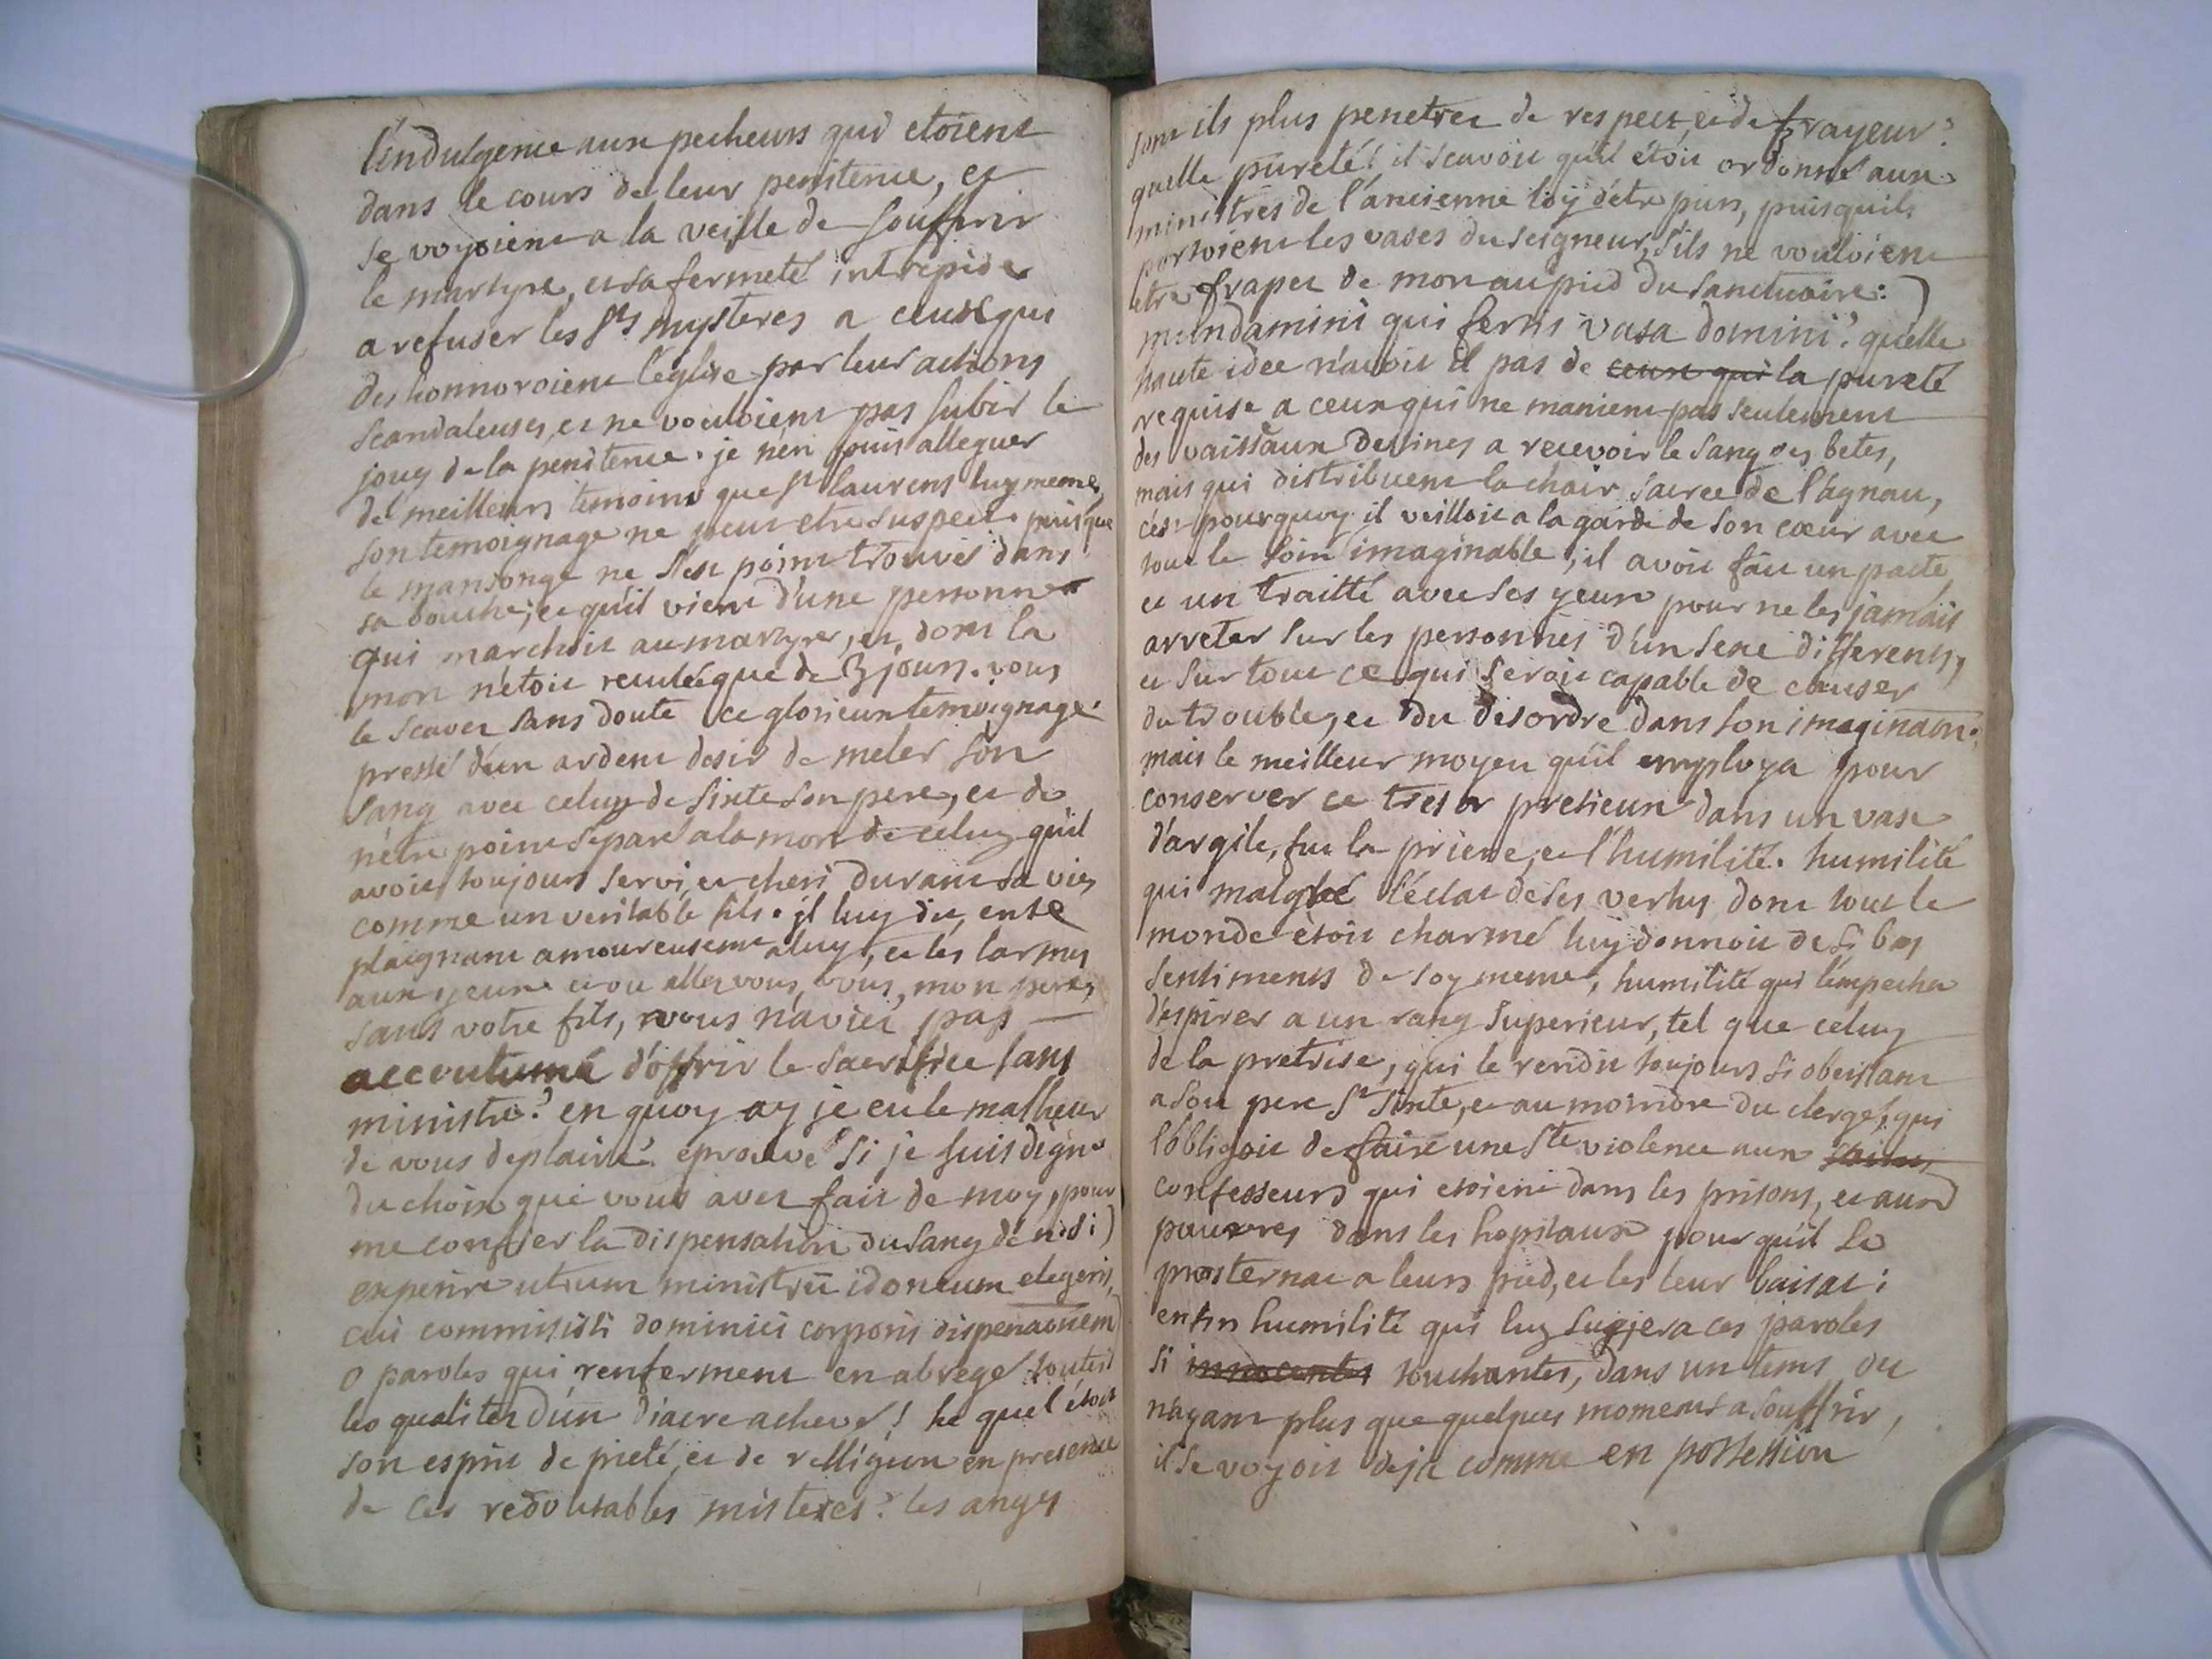 l'indulgence aux pecheurs qui etoient
dans le cours de leur penitence, et
se voyoient a la veille de souffrir
le martyre, et sa fermeté intrepide
a refuser les Sts mysteres a ceux qui
deshonnoroient l'eglise par leur actions
scandaleuses, et ne vouloient pas subir le
joug de la penitence. je n'en puis alleguer
de meilleurs temoins que St laurens luy meme,
son temoignage ne peut etre suspect. puisque
le mansonge ne s'est point trouvés dans
sa bouche; et qu'il vient d'une personne
qui marchoit au martyre, et dont la
mort n'etoit reculée que de 3 jours. vous
le scavez sans doute ce glorieux temoignage.
pressé d'un ardent desir de meler son
sang avec celuy de sixte son pere, et de
n'etre point separé a la mort de celuy qu'il
avoit toujours servi, et cheri durant sa vie,
comme un veritable fils. il luy dit, en se
plaignant amoureusemt a luy, et les larmes
aux yeux et ou allez vous, vous, mon pere,
sans votre fils, vous n'aviez pas
accoutumé d'offrir le sacrifice sans
ministre? en quoy ay je eu le malheur
de vous deplaire? eprouvé si je suis digne
du choix que vous avez fait de moy, pour
me confier la dispensation du sang de
experire utrum ministrū idoneum elegeris,
cui commisisti dominici corporis dispenaonem
o paroles qui renferment en abregé toutes
les qualitez d'un diacre achevé! he quel étoit
son esprit de pieté, et de relligion en presence
de ces redoutables misteres? les anges
sont ils plus penetrez de respect, et de frayeur?
quelle pureté! il scavoit qu'il étoit ordonné aux
ministres de l'ancienne loy d'etre purs, puisquils
portoient les vases du seigneur, s'ils ne vouloient
etre frapez de mort au pied du sanctuaire:)
mundamini qui fertis vasa domini? quelle
haute idée n'avoit il pas de ceux qui la pureté
requise a ceux qui ne manient pas seulement
des vaissaux destines a recevoir le sang des betes,
mais qui distribuent la chair sacrée de l'agnau,
c'est pourquoy il veilloit a la garde de son cœur avec
tout le soin imaginable, il avoit fait un pacte,
et un traitté avec ses yeux pour ne les jamais
arreter sur les personnes d'un sexe differents,
et sur tout ce qui seroit capable de causer
du trouble, et du desordre dans son imaginaon.
mais le meilleur moyen qu'il employa pour
conserver ce tresor pretieux dans un vase
d'argile, fut la priere, et l'humilité. humilité
qui malgré l'éclat de ses vertus dont tout le
monde étoit charmé luy donnoit de si bas
sentiments de soy meme, humilité qui l'empecha
d'aspirer a un rang superieur, tel que celuy
de la pretrise, qui le rendit toujours si obeissant
a son pere St sixte, et au moindre du clergé, qui
l'obligoit de faire une Ste violence aux saints
confesseurs qui etoient dans les prisons, et aux
pauvres dans les hopitaux pour qu'il se
prosternat a leurs pied, et les leur baisat:
enfin humilité qui luy sugjera ces paroles
si innocentes touchantes, dans un tems ou
n'ayant plus que quelques moments a souffrir,
il se voyoit deja comme en possession